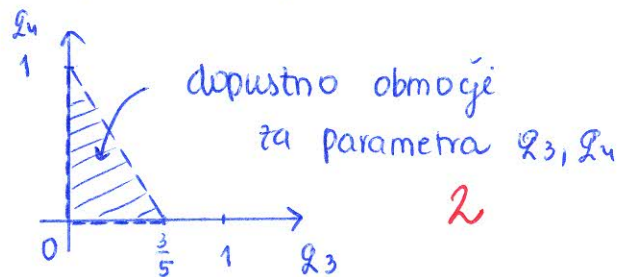 q₄
1
dopustno območje
za parametra q₃, q₄
2
0
3/5
1
q₃